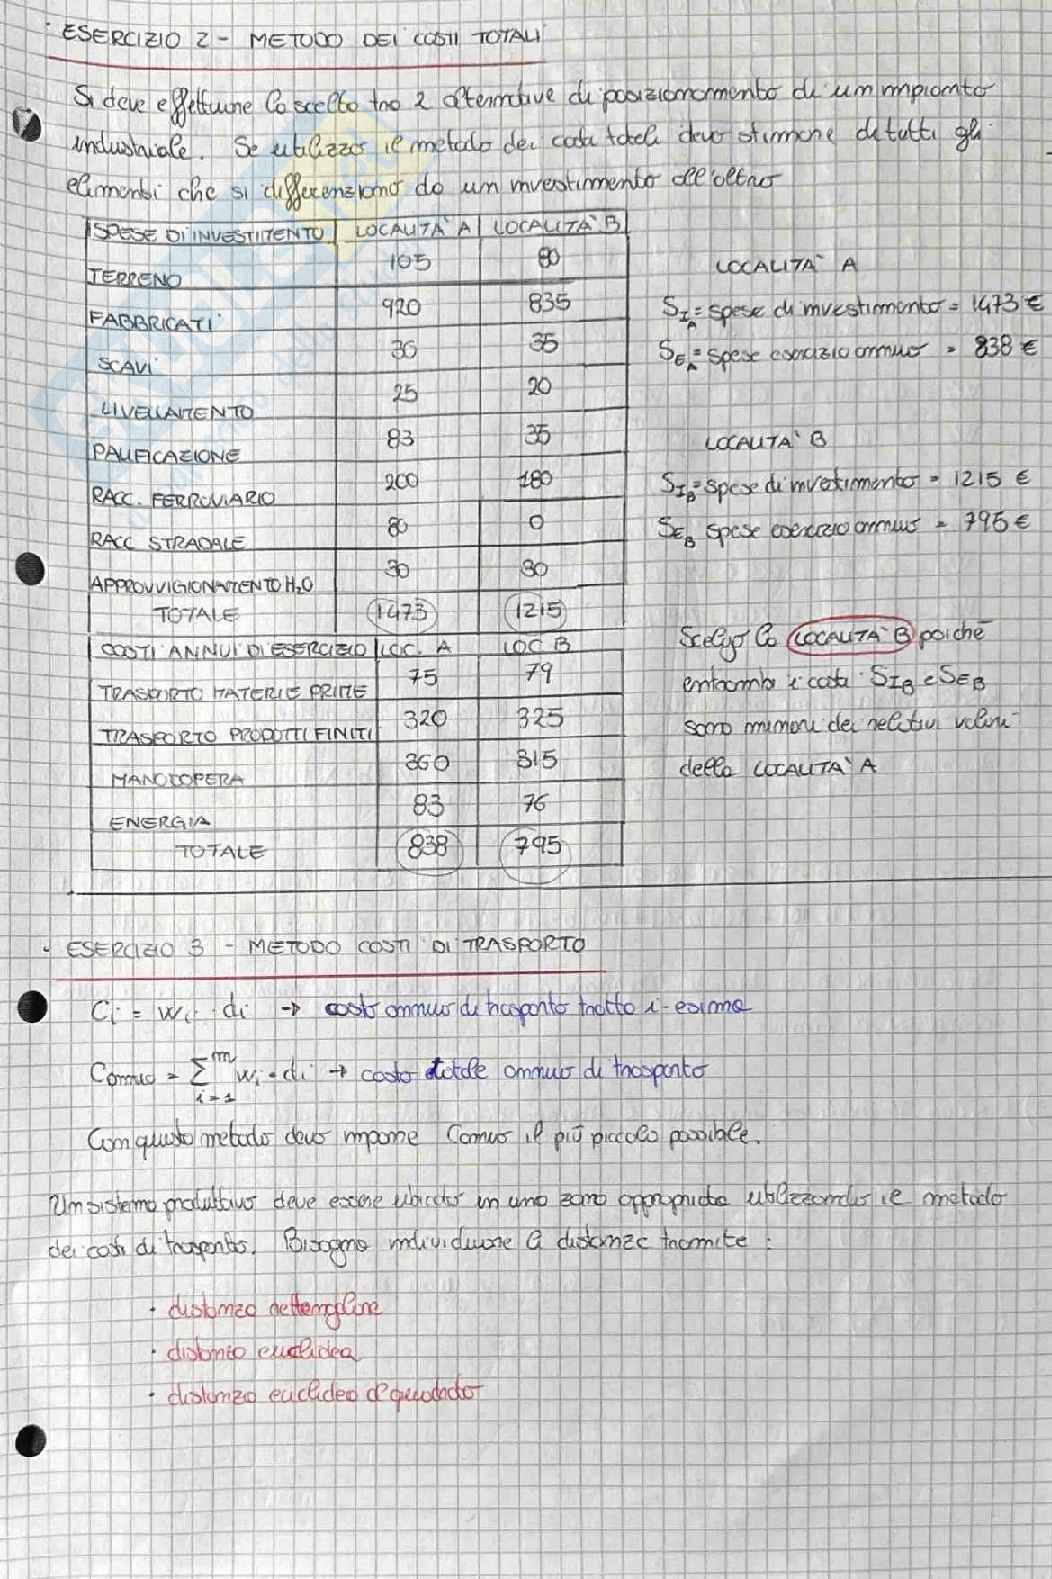 ESERCIZIO 2 - METODO DEI COSTI TOTALI
Si deve effettuare la scelta tra 2 alternative di posizionamento di un impianto
industriale. Se utilizzo il metodo dei costi totali devo stimare di tutti gli
elementi che si differenziano da un investimento all'altro
SPESE DI INVESTIMENTO LOCALITA' A LOCALITA' B
TERRENO 105 80
FABBRICATI 920 835
SCAVI 30 35
LIVELLAMENTO 25 20
PALIFICAZIONE 83 35
RACC. FERROVIARIO 200 180
RACC STRADALE 80 0
APPROVVIGIONAMENTO H₂O 30 30
TOTALE 1473 1215
COSTI ANNUI DI ESERCIZIO LOC. A LOC B
TRASPORTO MATERIE PRIME 75 79
TRASPORTO PRODOTTI FINITI 320 325
MANODOPERA 360 315
ENERGIA 83 76
TOTALE 838 795
LOCALITA' A
S_IA = spese di investimento = 1473 €
S_EA = spese esercizio annuo = 838 €
LOCALITA' B
S_IB = spese di investimento = 1215 €
S_EB spese esercizio annuo = 795 €
Scelgo la LOCALITA' B poiché
entrambi i costi S_IB e S_EB
sono minori dei relativi valori
della LOCALITA' A
ESERCIZIO 3 - METODO COSTI DI TRASPORTO
Ci = wi · di → costo annuo di trasporto tratto i-esima
Cannuo = Σ^m_{i=1} wi · di → costo totale annuo di trasporto
Con questo metodo devo imporre Cannuo il più piccolo possibile.
Un sistema produttivo deve essere ubicato in una zona appropriata utilizzando il metodo
dei costi di trasporto. Bisogna individuare la distanza tramite :
· distanza rettangolare
· distanza euclidea
· distanza euclidea al quadrato